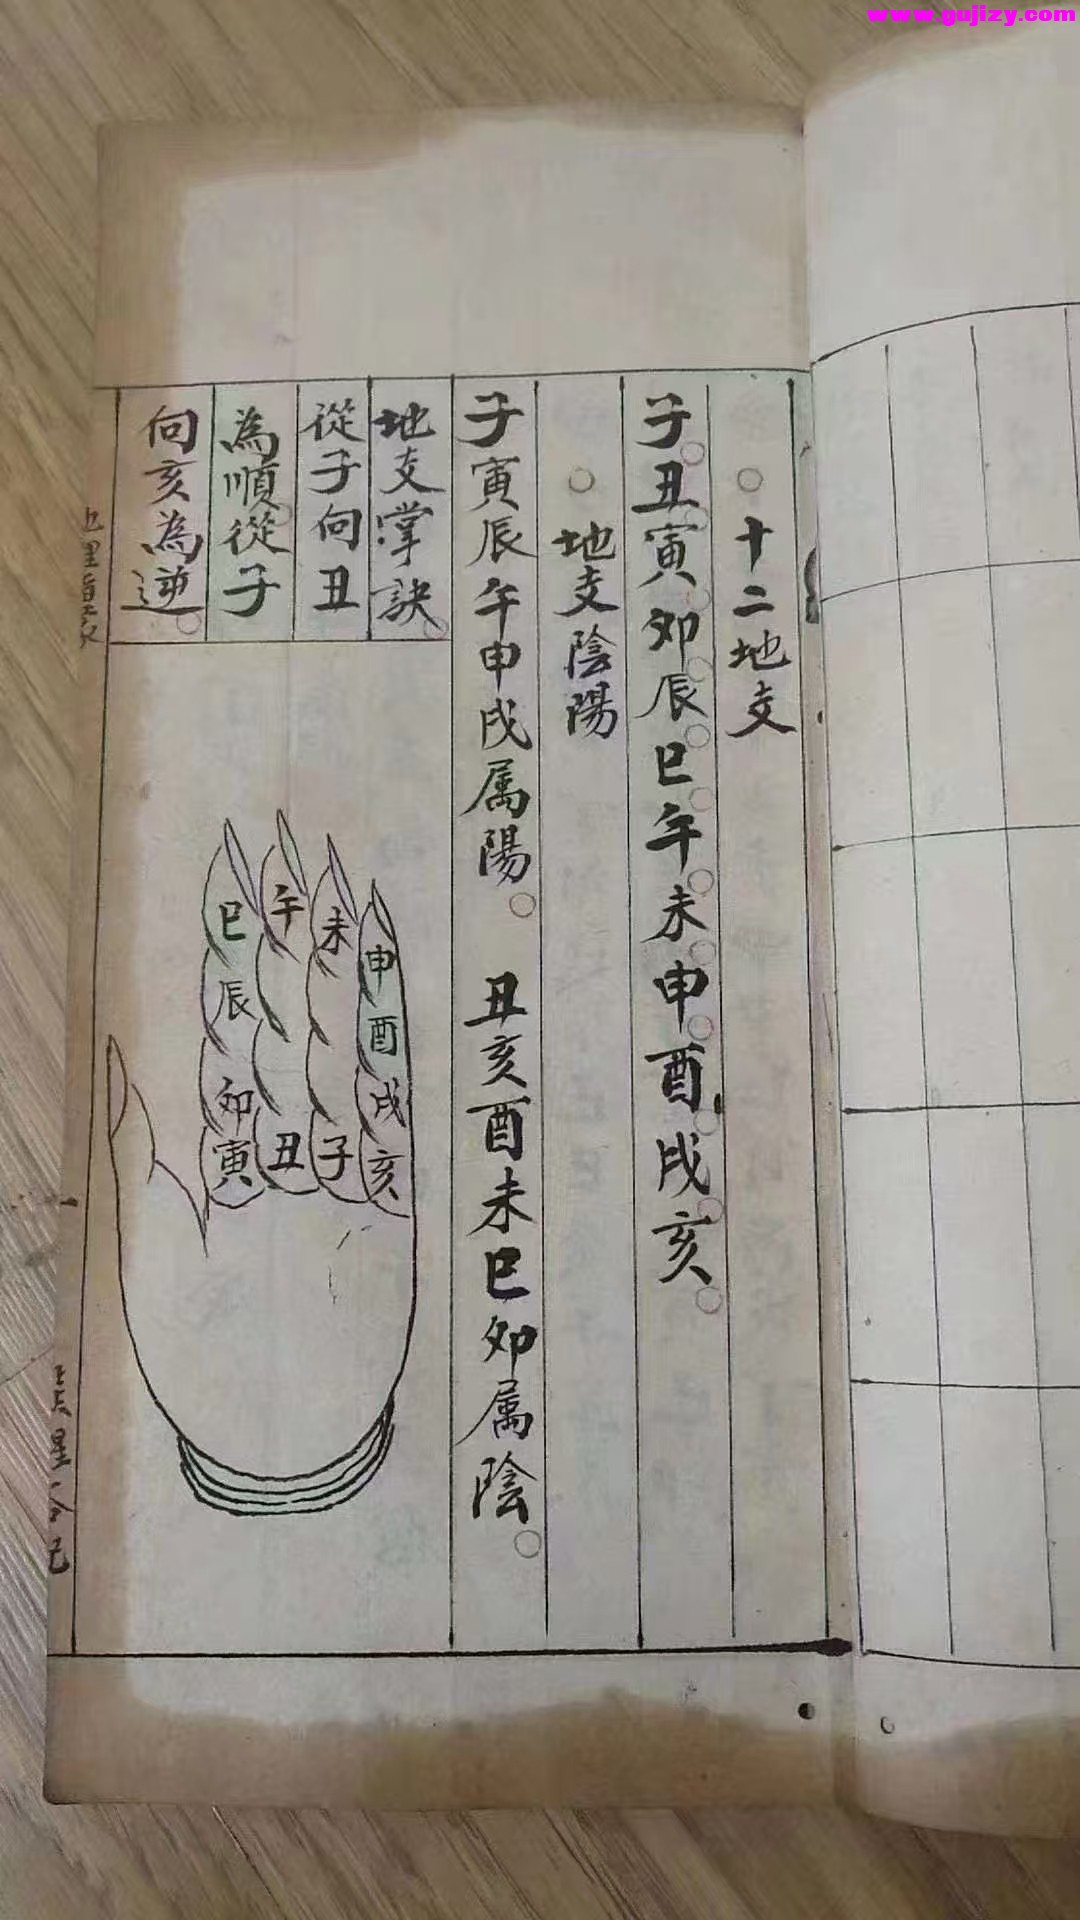 www.gujizy.com
十二地支
子丑寅卯辰巳午未申酉戌亥
地支陰陽
子寅辰午申戌属陽 丑亥酉未巳卯属陰
地支掌訣
從子向丑
為順從子
向亥為逆
巳 午 未 申
辰 酉
卯 戌
寅 丑 子 亥